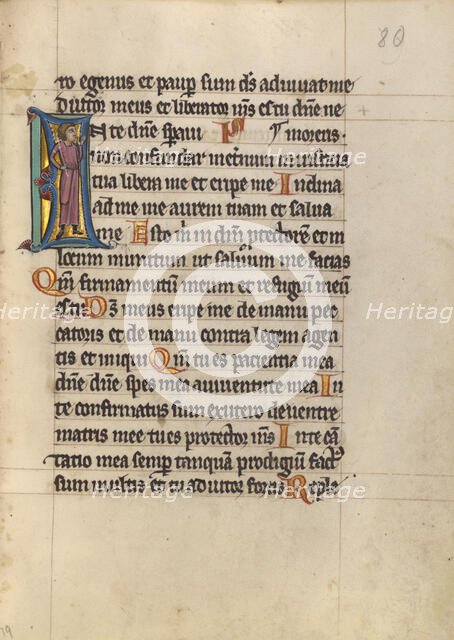 80
ro egenus et paup sum ds adiuuat me
Diutor meus et liberator m̄s es tu dn̄e ne
In te dn̄e speraui Ps moreris.
non confundar in eternum in iusticia
tua libera me et eripe me Inclina
ad me aurem tuam et salua
me Esto m̄ in dm̄ ptectorem et in
locum munitum ut saluum me facias
Qm̄ firmamentum meum et refugium meū
es tu Ds̄ meus eripe me de manu pec
catoris et de manu contra legem agen
tis et iniqui Qm̄ tu es paciencia mea
dn̄e dn̄e spes mea a iuuentute mea In
te confirmatus sum ex utero de uentre
matris mee tu es protector m̄s In te cā
tatio mea semp tanquā prodigiū factꝰ
sum multis et tu adiutor fortis Reple